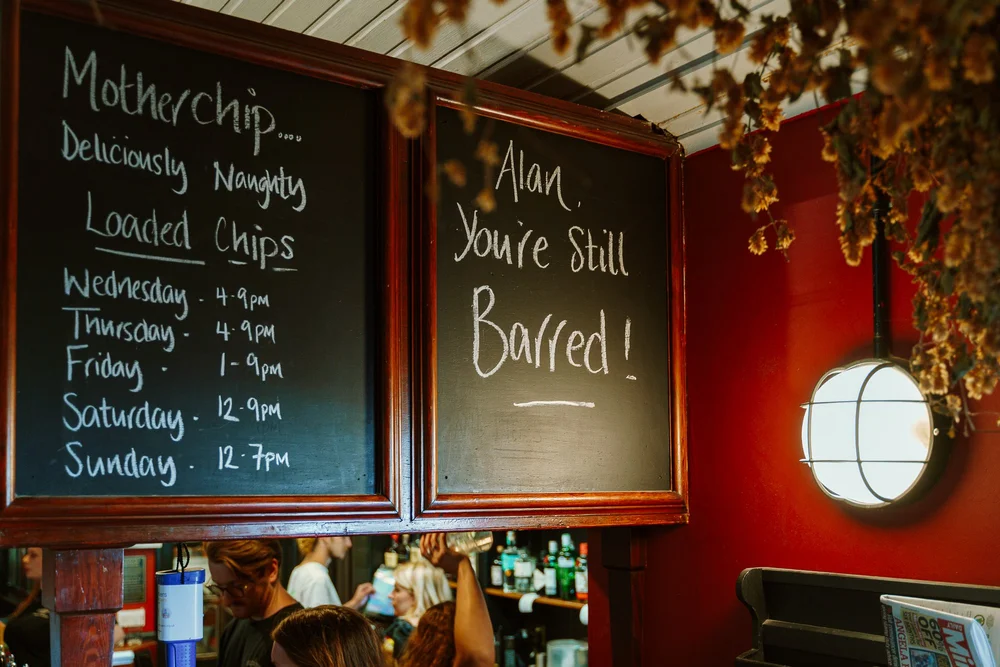 Motherchip....
Deliciously Naughty
Loaded Chips
Wednesday . 4-9pm
Thursday . 4-9pm
Friday . 1-9pm
Saturday . 12-9pm
Sunday . 12-7pm
Alan,
You're Still
Barred!